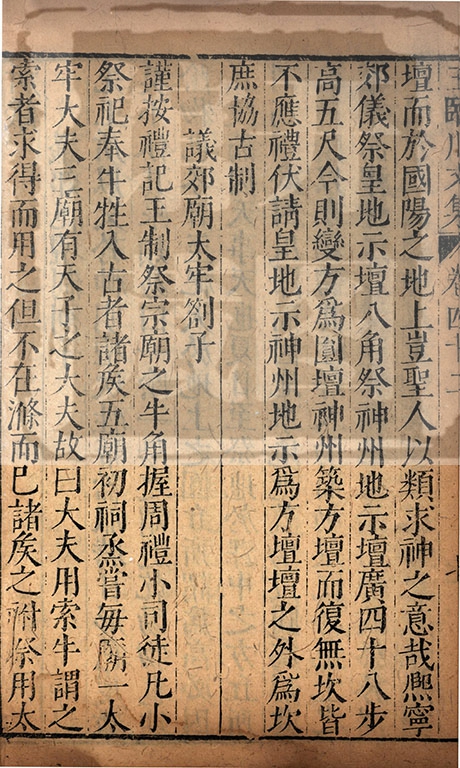 壇而於國陽之地上豈聖人以類求神之意哉熈寧
郊儀祭皇地示壇八角祭神州地示壇廣四十八步
高五尺今則變方爲圓壇神州築方壇而復無坎皆
不應禮伏請皇地示神州地示爲方壇壇之外爲坎
庶協古制
議郊廟太牢劄子
謹按禮記王制祭宗廟之牛角握周禮小司徒凡小
祭祀奉牛牲入古者諸侯五廟初祠烝嘗每廟一太
牢大夫三廟有天子之大夫故曰大夫用索牛謂之
索者求得而用之但不在滌而巳諸侯之祔祭用太